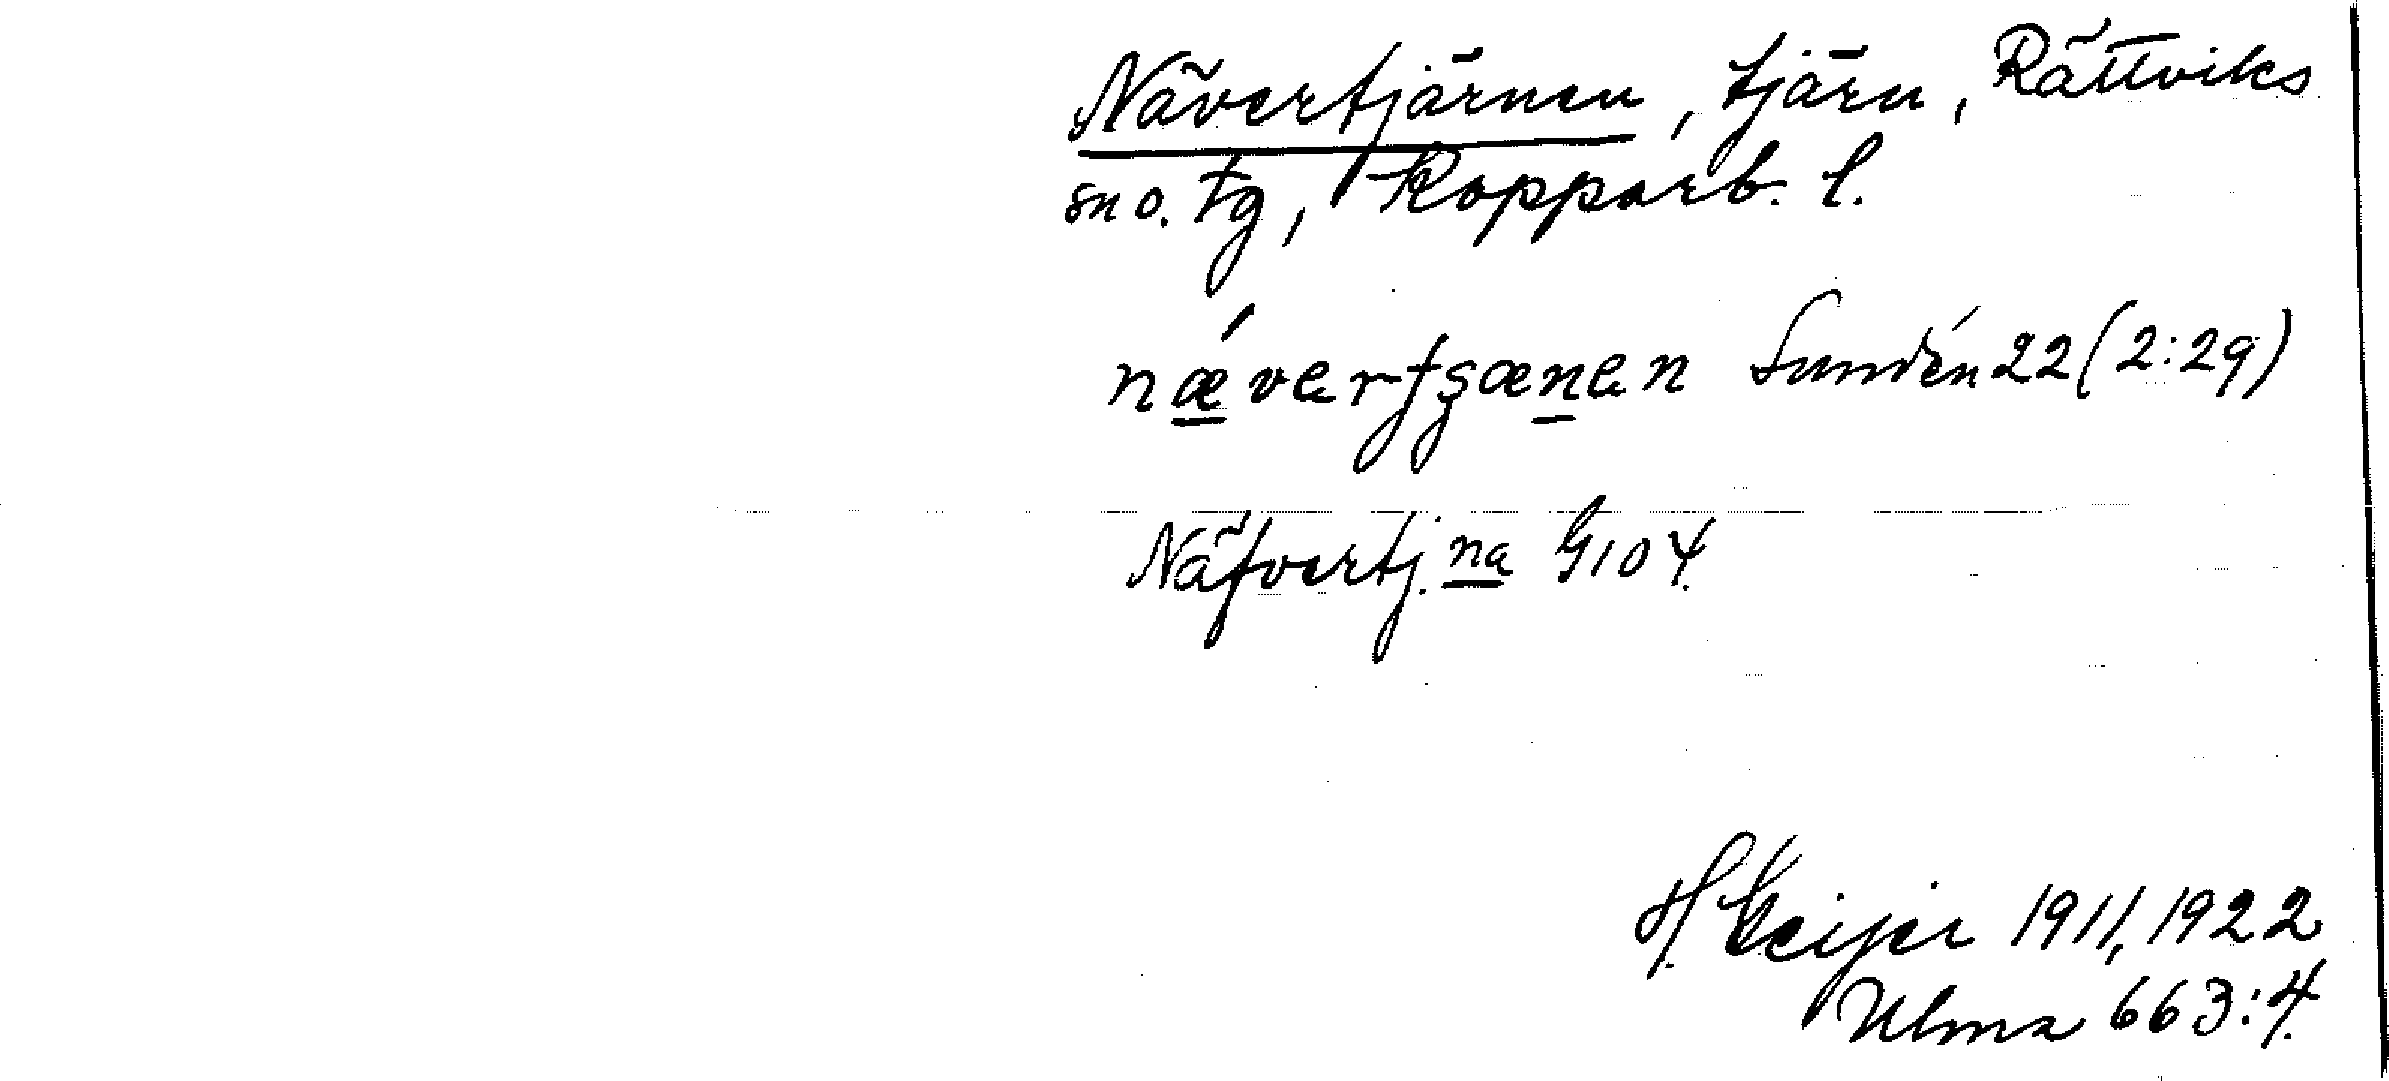 Nävertjärnen, tjärn, Rättviks
sn o. tg, Kopparb. l.
nǽvertʂænen Sundén 22 (2:29)
Näfvertj. na G104
H. Geijer 1911, 1922
Ulma 663:4